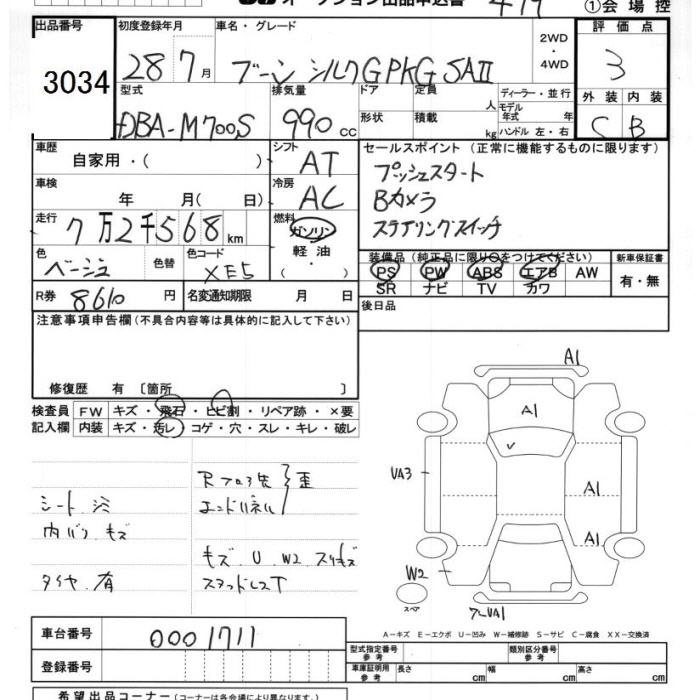 オークション出品申込書 419
①会場控
出品番号 初度登録年月 車名・グレード 2WD・4WD 評価点
3034 28 7月 ブーン シルク G PKG SAⅡ 3
型式 排気量 ドア 定員 人 ディーラー・並行 外装 内装
DBA-M700S 990cc 形状 積載 kg モデル年式 年 ハンドル 左・右 C B
車歴 シフト セールスポイント(正常に機能するものに限ります)
自家用・( ) AT プッシュスタート
車検 冷房 Bカメラ
年 月( 日) AC ステアリングスイッチ
走行 燃料
7万2千568km ガソリン 軽油・( )
色 色替 色コード 装備品(純正品に限り○をつけてください) 新車保証書
ベージュ XE5 PS PW ABS エアB AW 有・無
R券 8610円 名変通知期限 月 日 SR ナビ TV カワ
注意事項申告欄(不具合内容等は具体的に記入して下さい) 後日品
修復歴 有 〔箇所 〕
検査員 FW キズ・飛石・ヒビ割・リペア跡・×要
記入欄 内装 キズ・汚レ・コゲ・穴・スレ・キレ・破レ
A1
A1
歪
エンドパネル
VA3
シート、シミ
A1
内バリ キズ
A1
キズ U W2 スリキズ
W2
タイヤ、有 スタッドレスT
スペア
VA1
A-キズ E-エクボ U-凹み W-補修跡 S-サビ C-腐食 XX-交換済
車台番号 0001711
型式指定番号 参考 類別区分番号 参考
登録番号 車庫証明用 参考 長さ cm 幅 cm 高さ cm
希望出品コーナー(コーナーは各会場により異なります。)